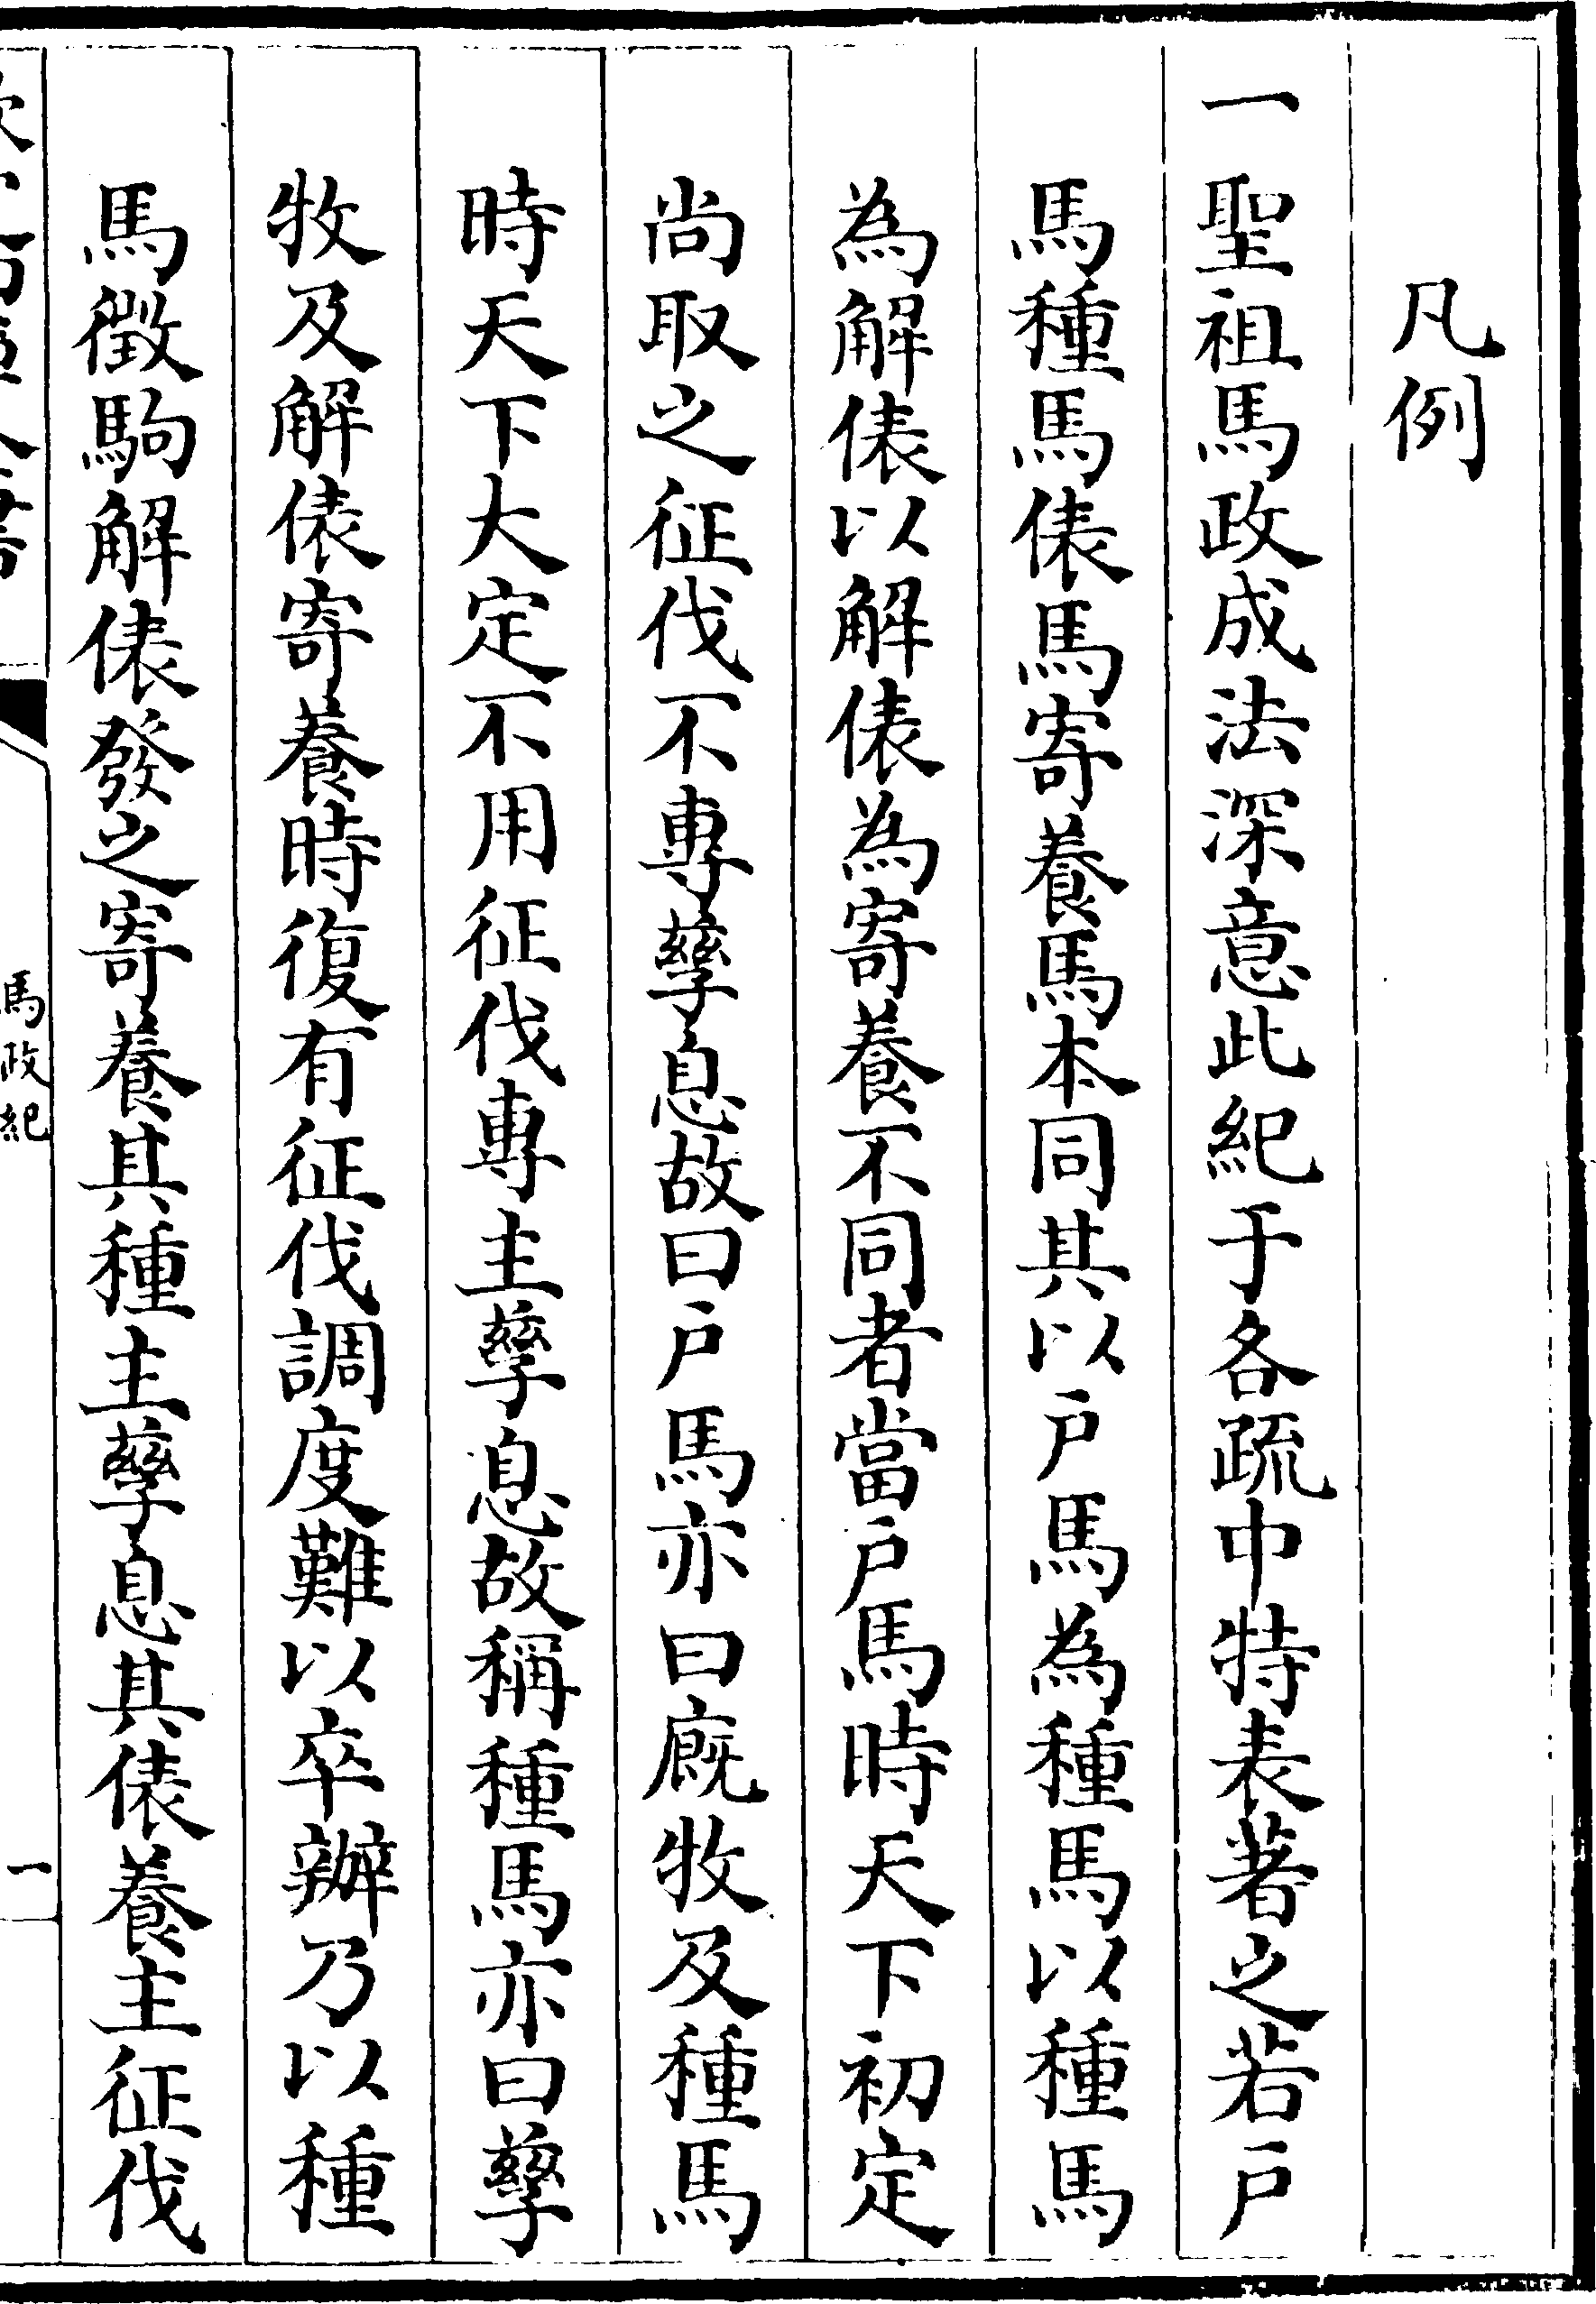 凡例
一聖祖馬政成法深意此紀于各疏中特表著之若戶
馬種馬俵馬寄養馬本同其以戶馬為種馬以種馬
為解俵以解俵為寄養不同者當戶馬時天下初定
尚取之征伐不專孳息故曰戶馬亦曰廐牧及種馬
時天下大定不用征伐專主孳息故稱種馬亦曰孳
牧及解俵寄養時復有征伐調度難以卒辦乃以種
馬徵駒解俵發之寄養其種主孳息其俵養主征伐
馬政紀
一